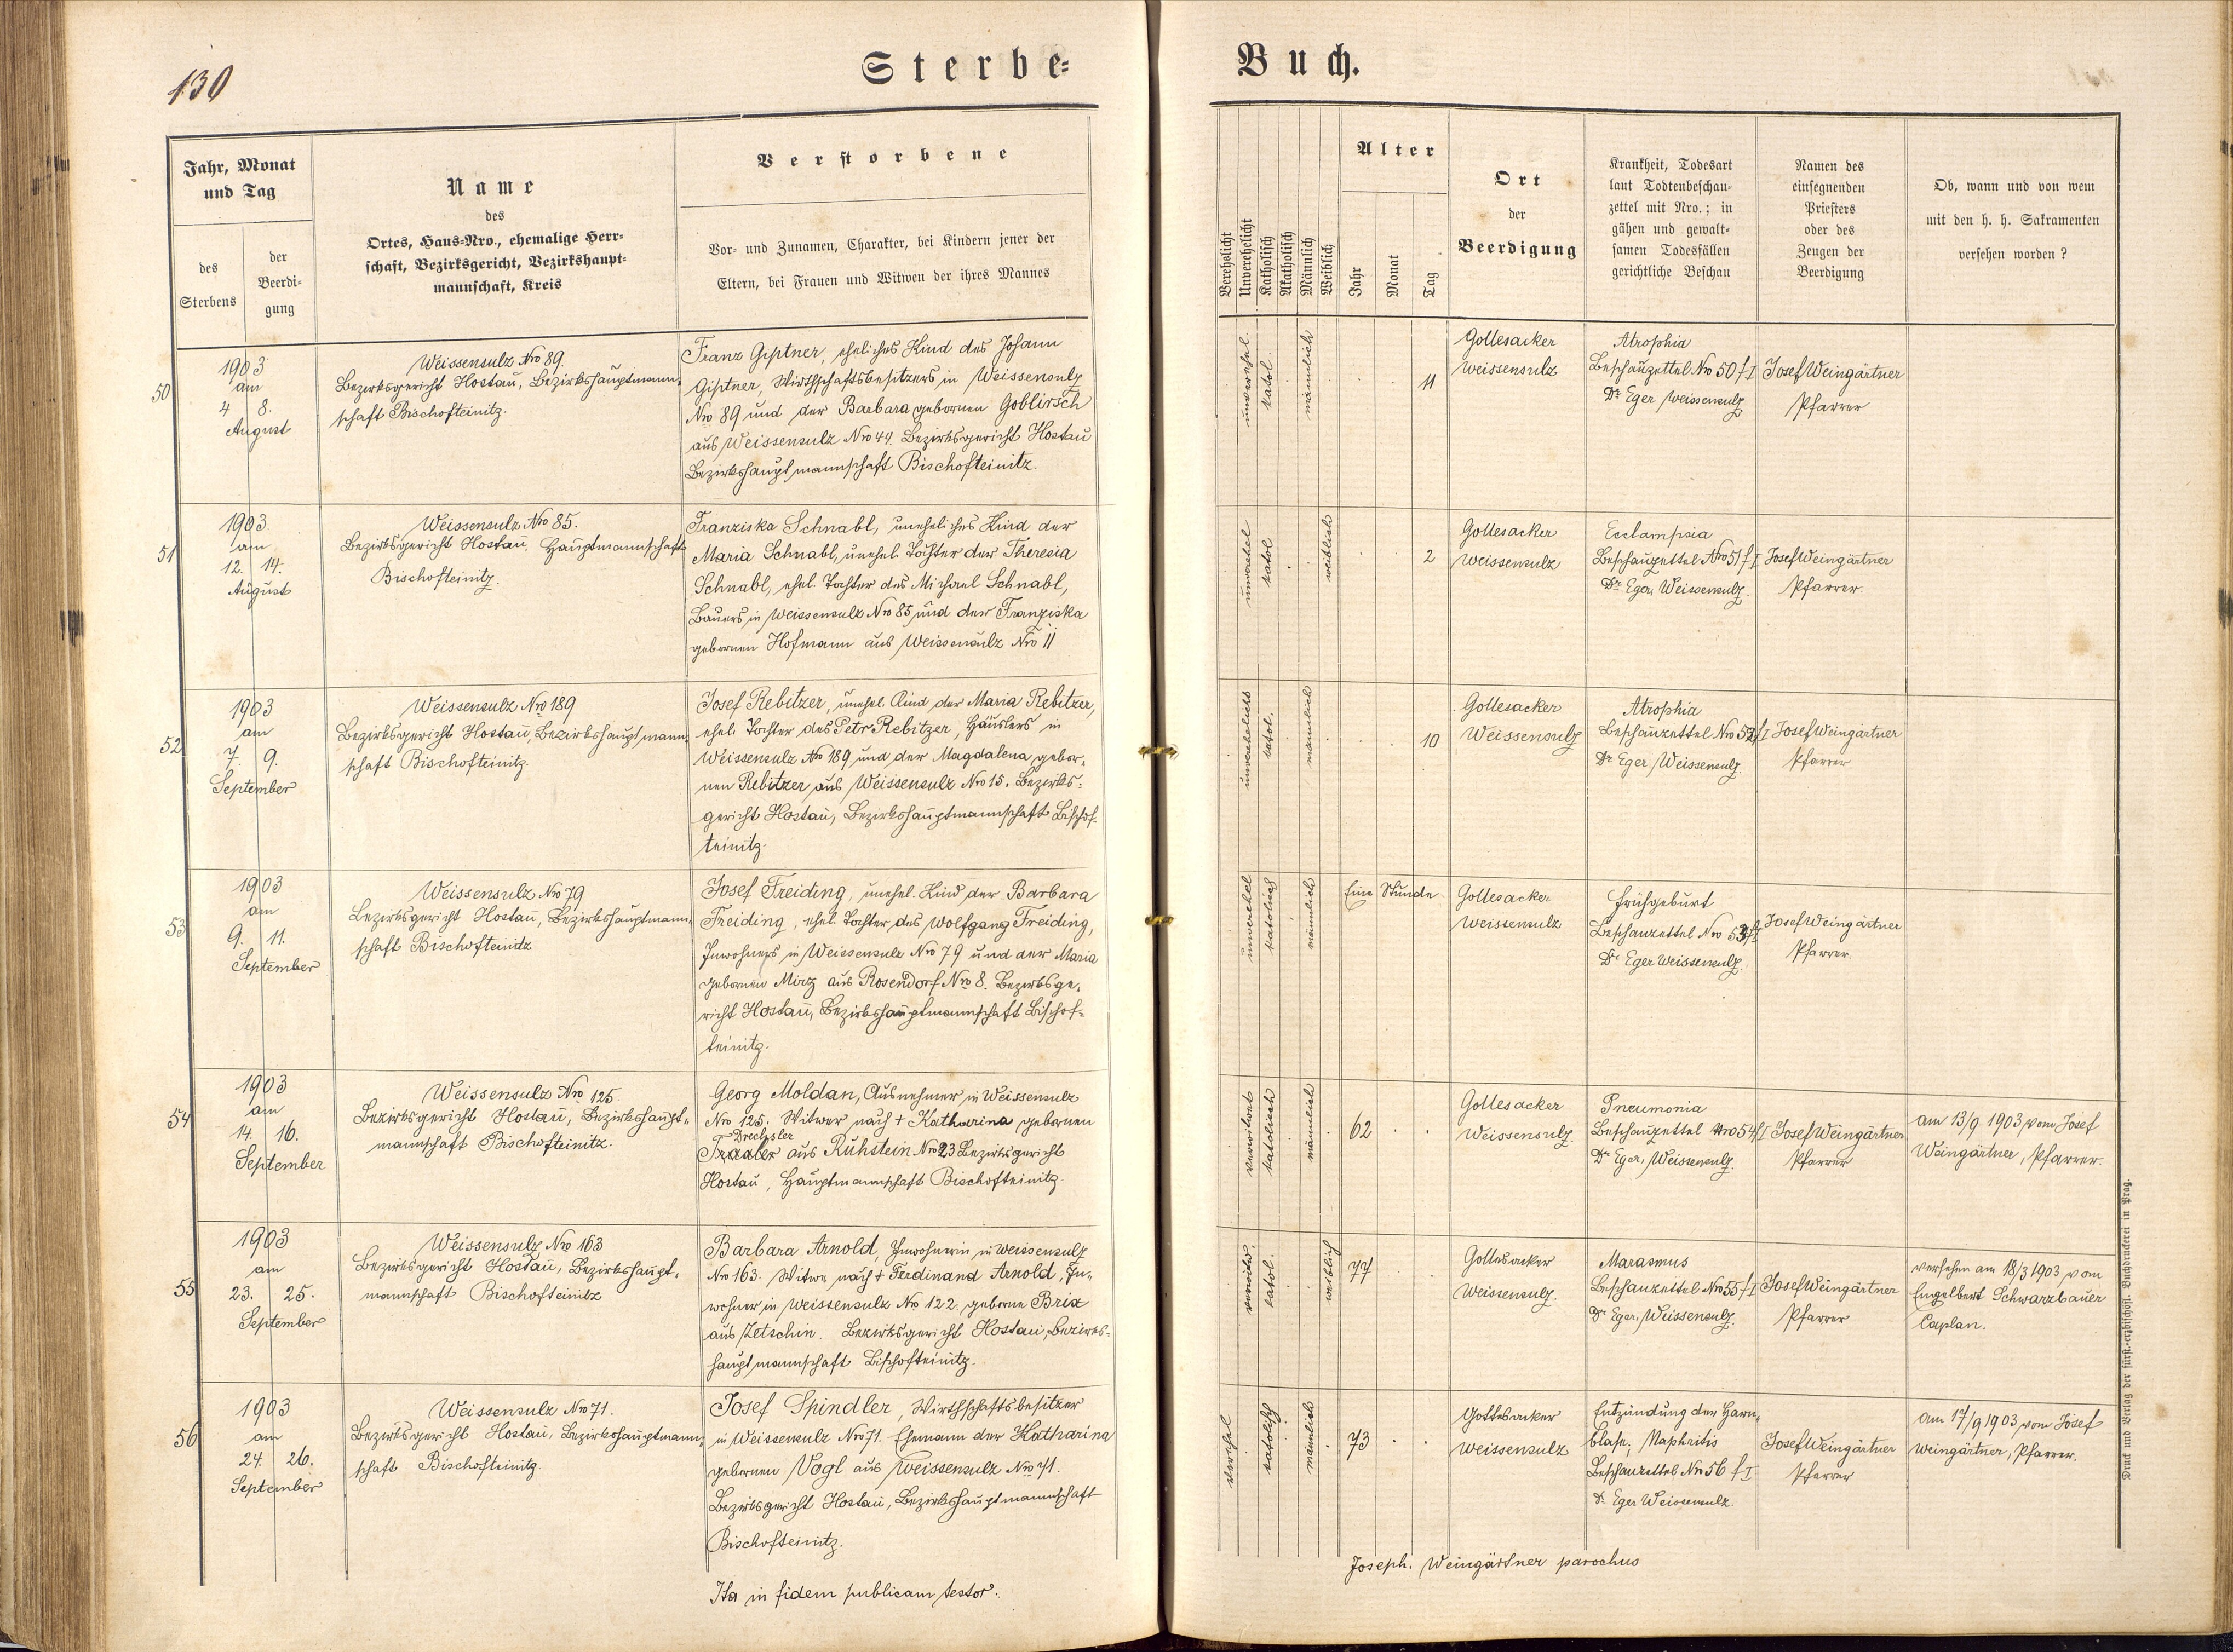 130
Sterbe=
Jahr, Monat
und Tag
des
Sterbens
der
Beerdi=
gung
Name
des
Ortes, Haus=Nro., ehemalige Herr=
schaft, Bezirksgericht, Bezirkshaupt=
mannschaft, Kreis
Verstorbene
Vor= und Zunamen, Charakter, bei Kindern jener der
Eltern, bei Frauen und Witwen der ihres Mannes
50
1903
am
4 8.
August
Weissensulz Nro 89.
Bezirksgericht Hostau, Bezirkshauptmann=
schaft Bischofteinitz.
Franz Giptner, eheliches Kind des Johann
Giptner, Wirthschaftsbesitzers in Weissensulz
Nro 89 und der Barbara gebornen Goblirsch
aus Weissensulz Nro 44. Bezirksgericht Hostau
Bezirkshauptmannschaft Bischofteinitz.
51
1903.
am
12. 14.
August
Weissensulz Nro 85.
Bezirksgericht Hostau, Hauptmannschaft
Bischofteinitz.
Franziska Schnabl, uneheliches Kind der
Maria Schnabl, unehel. Tochter der Theresia
Schnabl, ehel. Tochter des Michael Schnabl,
Bauers in Weissensulz Nro 85 und der Franziska
gebornen Hofmann aus Weissensulz Nro 11
52
1903
am
7. 9.
September
Weissensulz Nro 189
Bezirksgericht Hostau, Bezirkshauptmann=
schaft Bischofteinitz
Josef Rebitzer, unehel. Kind der Maria Rebitzer,
ehel. Tochter des Petr Rebitzer, Häuslers in
Weissensulz Nro 189 und der Magdalena gebor=
nen Rebitzer aus Weissensulz Nro 15. Bezirks=
gericht Hostau, Bezirkshauptmannschaft Bischof=
teinitz.
53
1903
am
9. 11.
September
Weissensulz Nro 79
Bezirksgericht Hostau, Bezirkshauptmann=
schaft Bischofteinitz
Josef Freiding, unehel. Kind der Barbara
Freiding, ehel. Tochter des Wolfgang Freiding,
Inwohners in Weissensulz Nro 79 und der Maria
gebornen Mirz aus Rosendorf Nro 8. Bezirksge=
richt Hostau, Bezirkshauptmannschaft Bischof=
teinitz.
54
1903
am
14. 16.
September
Weissensulz Nro 125.
Bezirksgericht Hostau, Bezirkshaupt=
mannschaft Bischofteinitz.
Georg Moldan, Ausnehmer in Weissensulz
Nro 125. Witwer nach + Katharina gebornen
Drechsler
aus Ruhstein Nro 23 Bezirksgericht
Hostau, Hauptmannschaft Bischofteinitz.
55
1903
am
23. 25.
September
Weissensulz Nro 163
Bezirksgericht Hostau, Bezirkshaupt=
mannschaft Bischofteinitz
Barbara Arnold, Inwohnerin in Weissensulz
Nro 163. Witwe nach + Ferdinand Arnold, In=
wohner in Weissensulz Nro 122. geborne Brix
aus Zetschin. Bezirksgericht Hostau, Bezirks=
hauptmannschaft Bischofteinitz.
56
1903
am
24. 26.
September
Weissensulz Nro 71.
Bezirksgericht Hostau, Bezirkshauptmann=
schaft Bischofteinitz.
Josef Spindler, Wirthschaftsbesitzer
in Weissensulz Nro 71. Ehemann der Katharina
gebornen Vogl aus Weissensulz Nro 71.
Bezirksgericht Hostau, Bezirkshauptmannschaft
Bischofteinitz.
Ita in fidem publicam testor.
Buch.
Verehelicht
Unverehelicht
Katholisch
Akatholisch
Männlich
Weiblich
Alter
Jahr
Monat
Tag
Ort
der
Beerdigung
Krankheit, Todesart
laut Todtenbeschau=
zettel mit Nro.; in
gähen und gewalt=
samen Todesfällen
gerichtliche Beschau
Namen des
einsegnenden
Priesters
oder des
Zeugen der
Beerdigung
Ob, wann und von wem
mit den h. h. Sakramenten
versehen worden ?
unverehel.
katol.
männlich
11
Gottesacker
Weissensulz
Atrophia
Beschauzettel Nro 50 f I
Dr Eger Weissensulz
Josef Weingärtner
Pfarrer
unverehel
katol
weiblich
2
Gottesacker
Weissensulz
Ecclampsia
Beschauzettel Nro 51 f I
Dr Eger, Weissensulz.
Josef Weingärtner
Pfarrer.
unverehelicht
katol.
männlich
10
Gottesacker
Weissensulz
Atrophia
Beschauzettel Nro 52 f I
Dr Eger Weissensulz.
Josef Weingärtner
Pfarrer
unverehel
katolisch
männlich
Eine Stunde
Gottesacker
Weissensulz
Frühgeburt
Beschauzettel Nro 53 f I
Dr Eger Weissensulz
Josef Weingärtner
Pfarrer.
verwitwet
katolisch
männlich
62
Gottesacker
Weissensulz.
Pneumonia
Beschauzettel Nro 54 f I
Dr Eger, Weissensulz.
Josef Weingärtner
Pfarrer
am 13/9 1903 vom Josef
Weingärtner, Pfarrer.
verwitw.
katol.
weiblich
77
Gottesacker
Weissensulz.
Marasmus
Beschauzettel Nro 55 f I
Dr Eger, Weissensulz.
Josef Weingärtner
Pfarrer
versehen am 18/3 1903 vom
Engelbert Schwarzbauer
Caplan.
verehel
katolisch
männlich
73
Gottesacker
Weissensulz
Entzündung der Harn=
blase, Naphritis
Beschauzettel Nro 56 f I
Dr Eger Weissensulz.
Josef Weingärtner
Pfarrer
am 17/9 1903 vom Josef
Weingärtner, Pfarrer.
Joseph. Weingärtner parochus
Druck und Verlag der fürst.=erzbischöfl. Buchdruckerei in Prag.